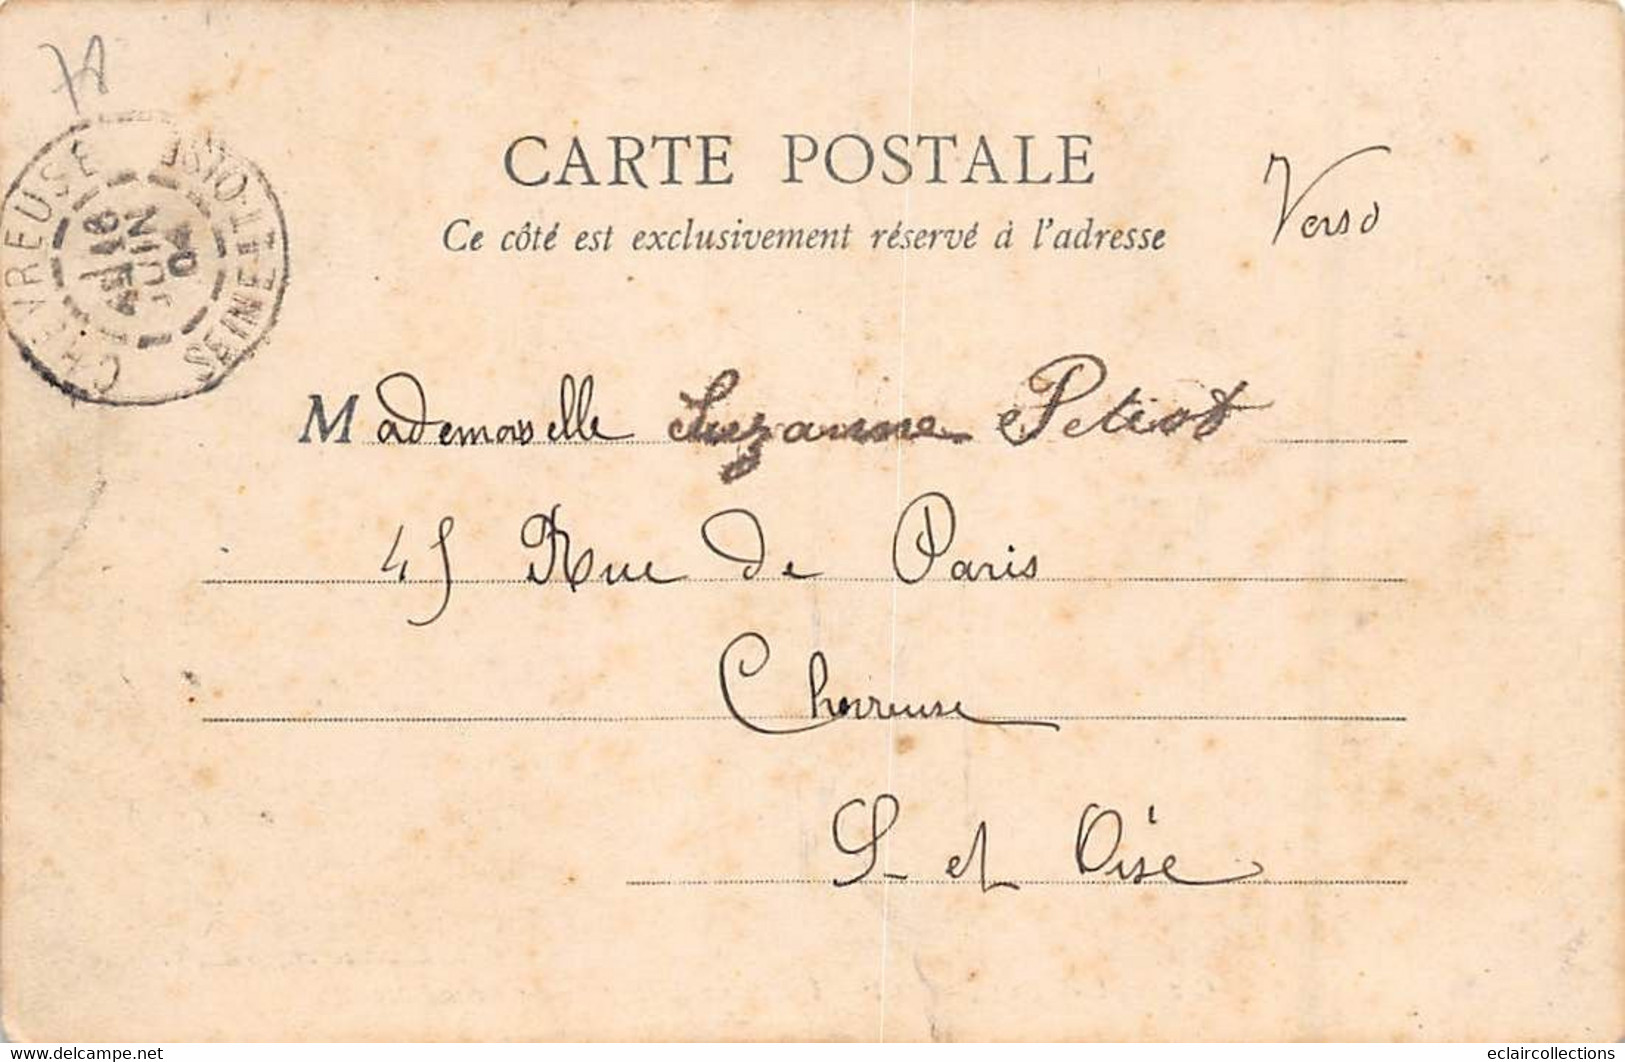 78
CHEVREUSE
SEINE-ET-OISE
18
JUIN
04
CARTE POSTALE
Ce côté est exclusivement réservé à l'adresse
Verso
Mademoiselle Suzanne Petiot
45 Rue de Paris
Chevreuse
S et Oise
delcampe.net
eclaircollections